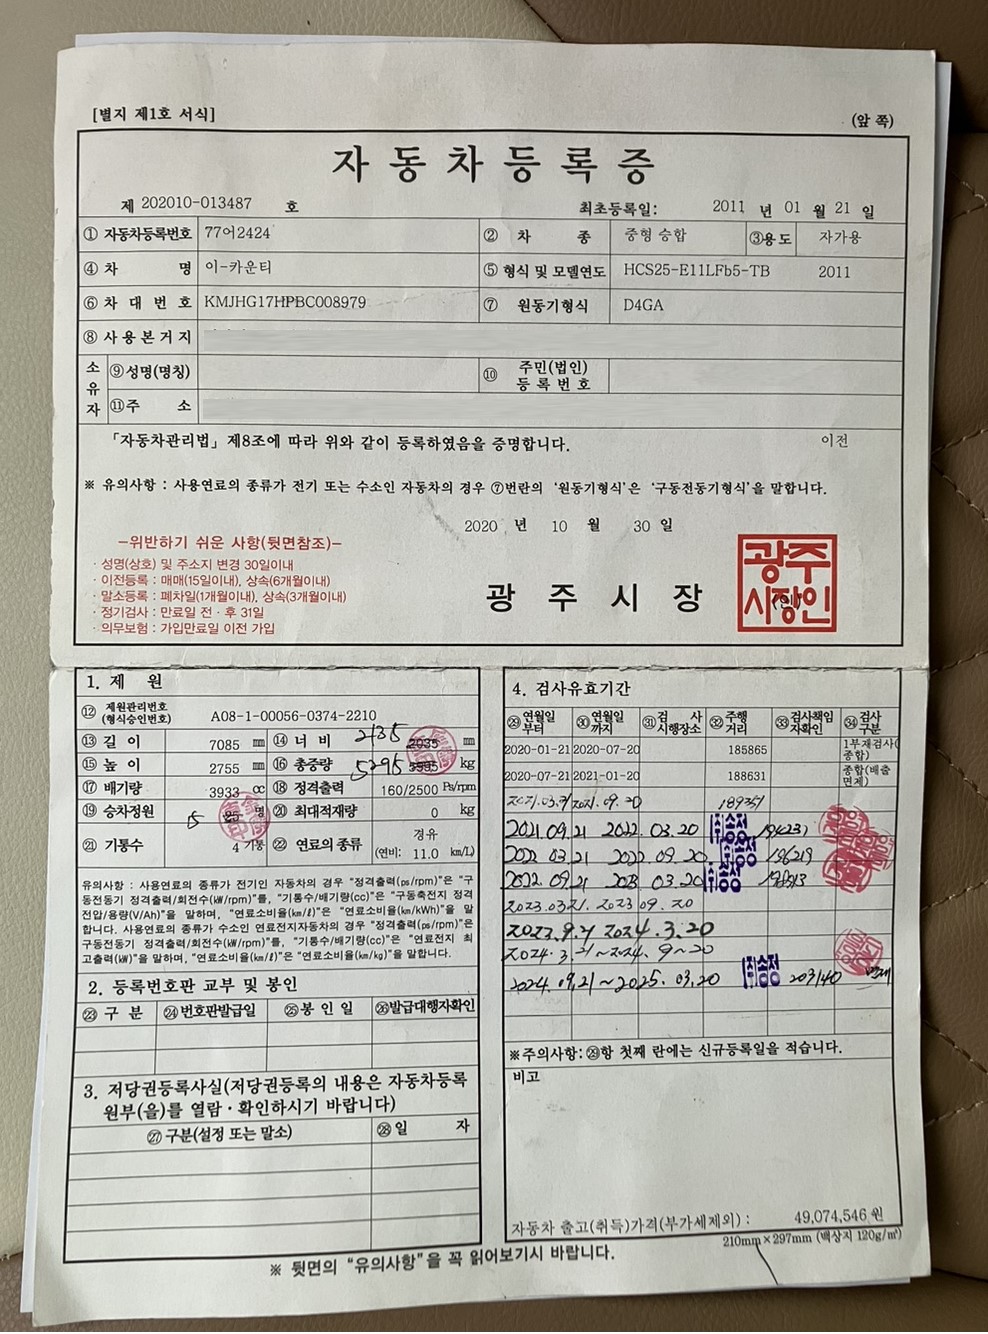 [별지 제1호 서식]
(앞 쪽)
자동차등록증
제 202010-013487 호
최초등록일: 2011 년 01 월 21 일
① 자동차등록번호 77어2424 ② 차 종 중형 승합 ③용도 자가용
④ 차 명 이-카운티 ⑤ 형식 및 모델연도 HCS25-E11LFb5-TB 2011
⑥ 차 대 번 호 KMJHG17HPBC008979 ⑦ 원동기형식 D4GA
⑧ 사 용 본 거 지
소유자 ⑨성명(명칭) ⑩ 주민(법인)등록번호
⑪주 소
「자동차관리법」 제8조에 따라 위와 같이 등록하였음을 증명합니다. 이전
※ 유의사항 : 사용연료의 종류가 전기 또는 수소인 자동차의 경우 ⑦번란의 '원동기형식'은 '구동전동기형식'을 말합니다.
2020 년 10 월 30 일
-위반하기 쉬운 사항(뒷면참조)-
· 성명(상호) 및 주소지 변경 30일이내
· 이전등록 : 매매(15일이내), 상속(6개월이내)
· 말소등록 : 폐차일(1개월이내), 상속(3개월이내)
· 정기검사 : 만료일 전 · 후 31일
· 의무보험 : 가입만료일 이전 가입
광 주 시 장 (인)
광주
시장인
1. 제 원
⑫ 제원관리번호 (형식승인번호) A08-1-00056-0374-2210
⑬ 길 이 7085 mm ⑭ 너 비 2135 2035 mm
⑮ 높 이 2755 mm ⑯ 총중량 5295 kg
⑰ 배기량 3933 cc ⑱ 정격출력 160/2500 Ps/rpm
⑲ 승차정원 15 25 명 ⑳ 최대적재량 0 kg
㉑ 기통수 4 기통 ㉒ 연료의 종류 경유 (연비: 11.0 km/L)
유의사항 : 사용연료의 종류가 전기인 자동차의 경우 "정격출력(ps/rpm)"은 "구
동전동기 정격출력/회전수(kW/rpm)"를, "기통수/배기량(cc)"은 "구동축전지 정격
전압/용량(V/Ah)"을 말하며, "연료소비율(km/ℓ)"은 "연료소비율(km/kWh)"을 말
합니다. 사용연료의 종류가 수소인 연료전지자동차의 경우 "정격출력(ps/rpm)"은
구동전동기 정격출력/회전수(kW/rpm)"를, "기통수/배기량(cc)"은 "연료전지 최
고출력(kW)"을 말하며, "연료소비율(km/ℓ)"은 "연료소비율(km/kg)"을 말합니다.
2. 등록번호판 교부 및 봉인
㉓ 구 분 ㉔ 번호판발급일 ㉕ 봉 인 일 ㉖발급대행자확인
3. 저당권등록사실(저당권등록의 내용은 자동차등록
원부(을)를 열람 · 확인하시기 바랍니다)
㉗ 구분(설정 또는 말소) ㉘ 일 자
4. 검사유효기간
㉙ 연월일부터 ㉚ 연월일까지 ㉛검 사 시행장소 ㉜ 주행거리 ㉝ 검사책임자확인 ㉞ 검사구분
2020-01-21 2020-07-20 185865 1부재검사(종합)
2020-07-21 2021-01-20 188631 종합(배출면제)
2021.03.21 2021.09.20 189351
2021.09.21 2022.03.20 (주)송정 194231
2022.03.21 2022.09.20 (주)송정 196219
2022.09.21 2023 03.20 (주)송정
2023.03.21. 2023 09.20
2023.9.21 2024.3.20
2024.3.21~2024.9~20
2024.09.21~2025.03.20 (주)송정 203140
※주의사항: ㉙항 첫째 란에는 신규등록일을 적습니다.
비고
자동차 출고(취득)가격(부가세제외) : 49,074,546 원
210mm×297mm (백상지 120g/㎡)
※ 뒷면의 "유의사항"을 꼭 읽어보기시 바랍니다.